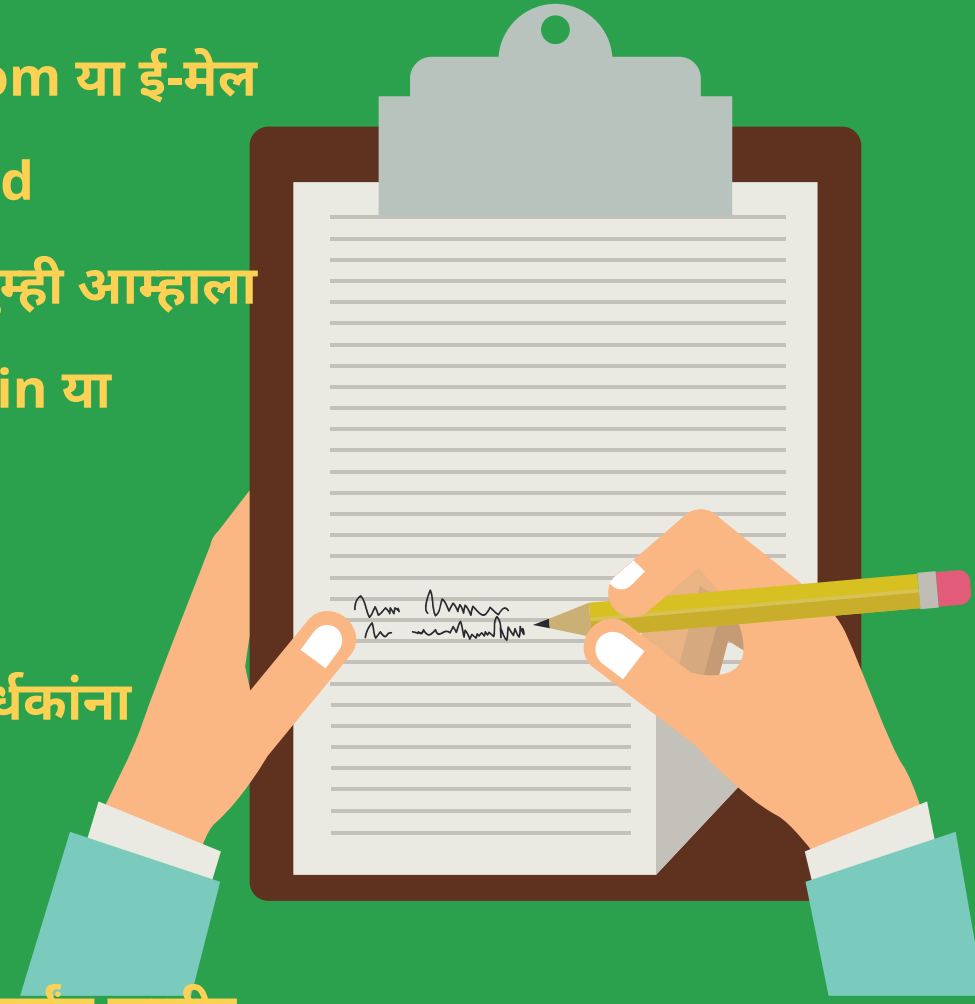 om या ई-मेल
d
म्ही आम्हाला
in या
र्धकांना